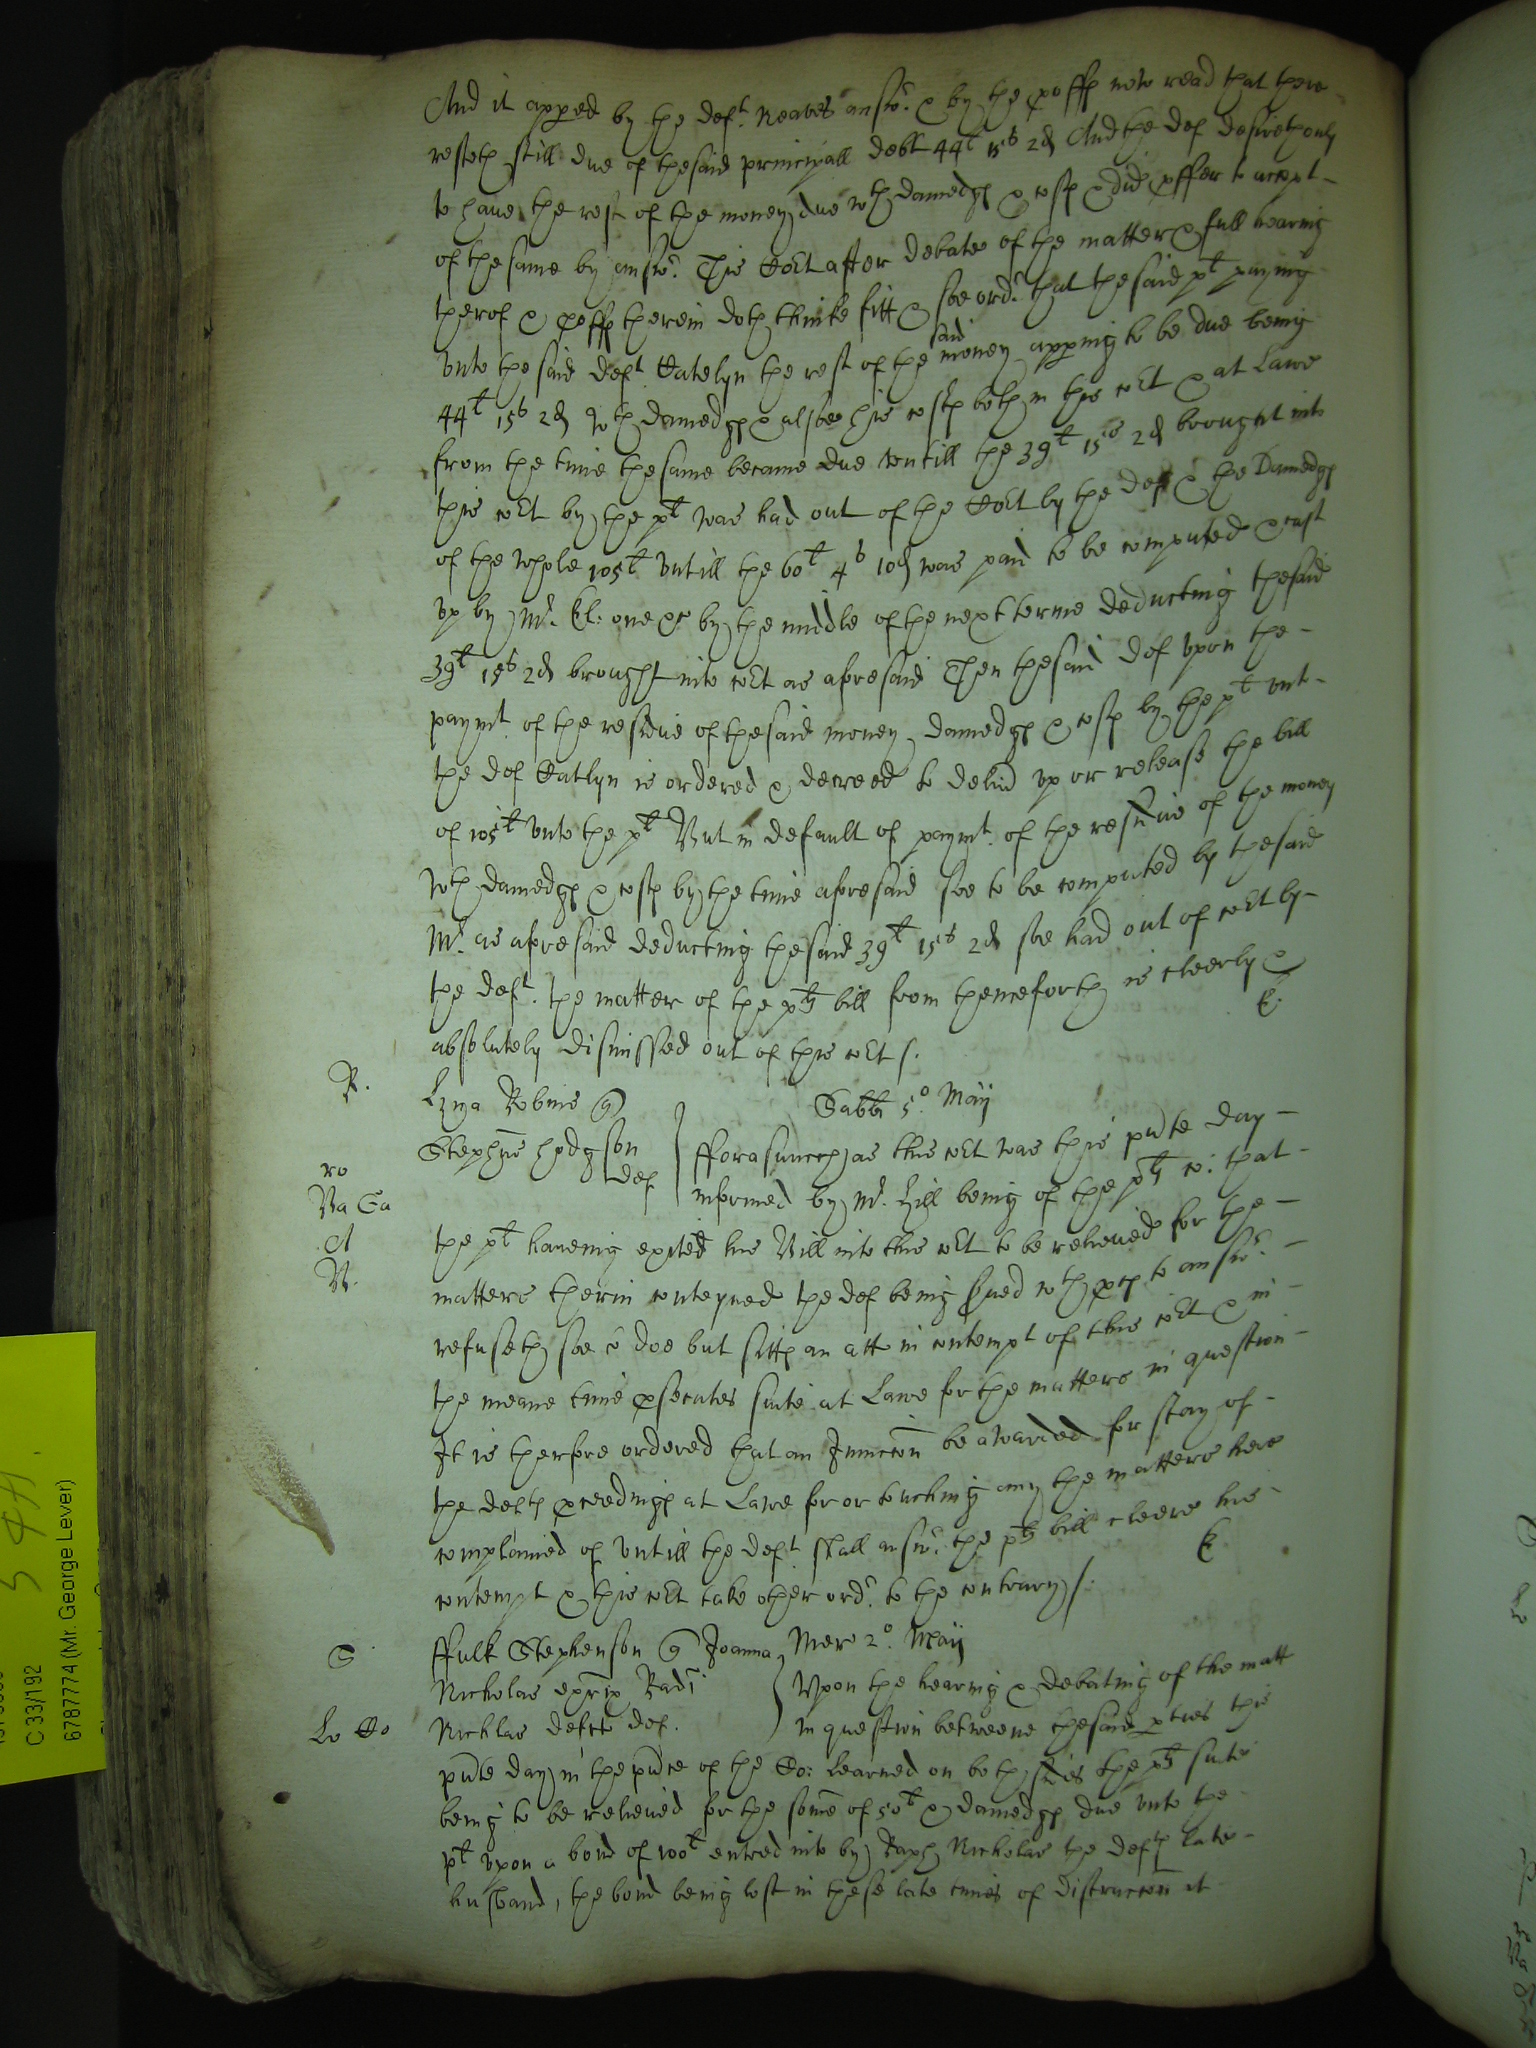 And it apped by the deft. Reaves answr. & by the proffe now read that there
resteth still due of the said principall debt 44l 15s 2d And the def desireth only
to have the rest of the money due wth damedges & costs & did pffer to accept
of the same by answr. This Cort after debate of the matter & full hearing
therof & proffe therein doth thinke fitt & soe ordr. that the said plt paying
unto the said deft Catelyn the rest of the said money apping to be due being
44l 15s 2d wth damedges & alsoe his costs both in this cort & at Lawe
from the time the same became due untill the 39l 15s 2d brought into
this cort by the plt was had out of the Cort by the def & the Damedges
of the whole 105l untill the 60l 4s 10d was paid to be computed & cast
up by Mr. &c by the middle of the next terme deducting the said
39l 15s 2d brought into cort as aforesaid Then the said def upon the
paymt. of the residue of the said money damedges & costs by the plt unto
the def Catlyn is ordered & decreed to delivr up or release the bill
of 105l unto the plt But in default of paymt. of the residue of the money
wth damedges & costs by the time aforesaid soe to be computed by the said
Mr. as aforesaid deducting the said 39l 15s 2d soe had out of cort by
the deft. the matter of the plts bill from thenceforth is cleerly &
absolutely dismissed out of this cort /.
R.
Robins q
Sabbti 5o. Maij
Stephus hodgson
def
fforasmuch as this cort was this psnte day
informed by Mr. Hill being of the plts co: that
the plt haveing exited his Bill into this cort to be releived for the
matters therin conteyned the def being sued wth pces to answr.
refuseth soe to doe but sitts an att in contempt of this cort & in
the meane time psecutes suite at Lawe for the matters in question
It is therfore ordered that an Iniuncton be awarded for stay of
the defts pceedings at Lawe for or touching any the matters here
complained of untill the deft shall answr. the plts bill cleere his
contempt & this cort take other ordr. to the contrary /.
S
ffulk Stephenson q Joanna
Merc 2o. Maij
Nicholas exrix Radi
Nichlas defct def.
Upon the hearing & debating of the matt
in question betweene the said pties this
psnte day in the psnce of the Co: learned on both sides the plts suite
being to be releived for the some of 50l & damedges due unto the
plt upon a bond of 100l entred into by Raph Nicholas the defts late
husband, the bond being lost in these late times of distraccon it
C 33/192
6787774 (Mr. George Lever)